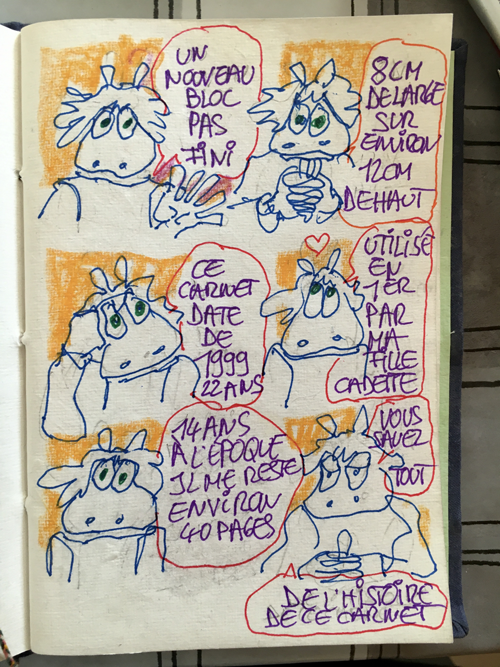 UN
NOUVEAU
BLOC
PAS
FINI
8CM
DE LARGE
SUR
ENVIRON
12CM
DE HAUT
CE
CARNET
DATE
DE
1999
22 ANS
UTILISÉ
EN
1ER
PAR
MA
FILLE
CADETTE
14 ANS
À L'ÉPOQUE
IL ME RESTE
ENVIRON
40 PAGES
VOUS
SAVEZ
TOUT
DE L'HISTOIRE
DE CE CARNET